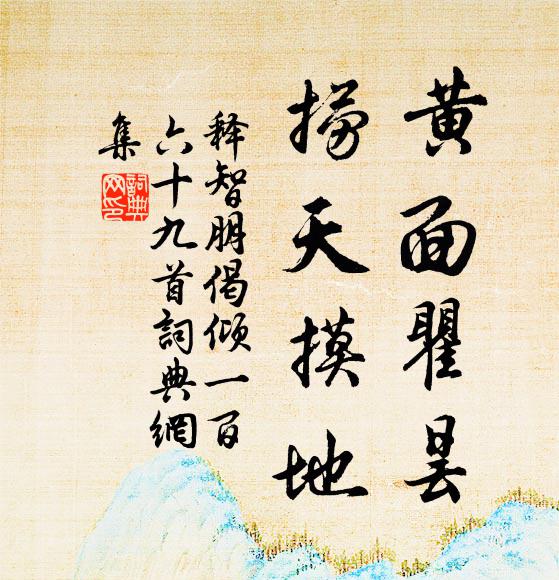 黄面瞿昙
捞天摸地
释智朋偈倾一百
六十九首詞典網
集
詞典網印